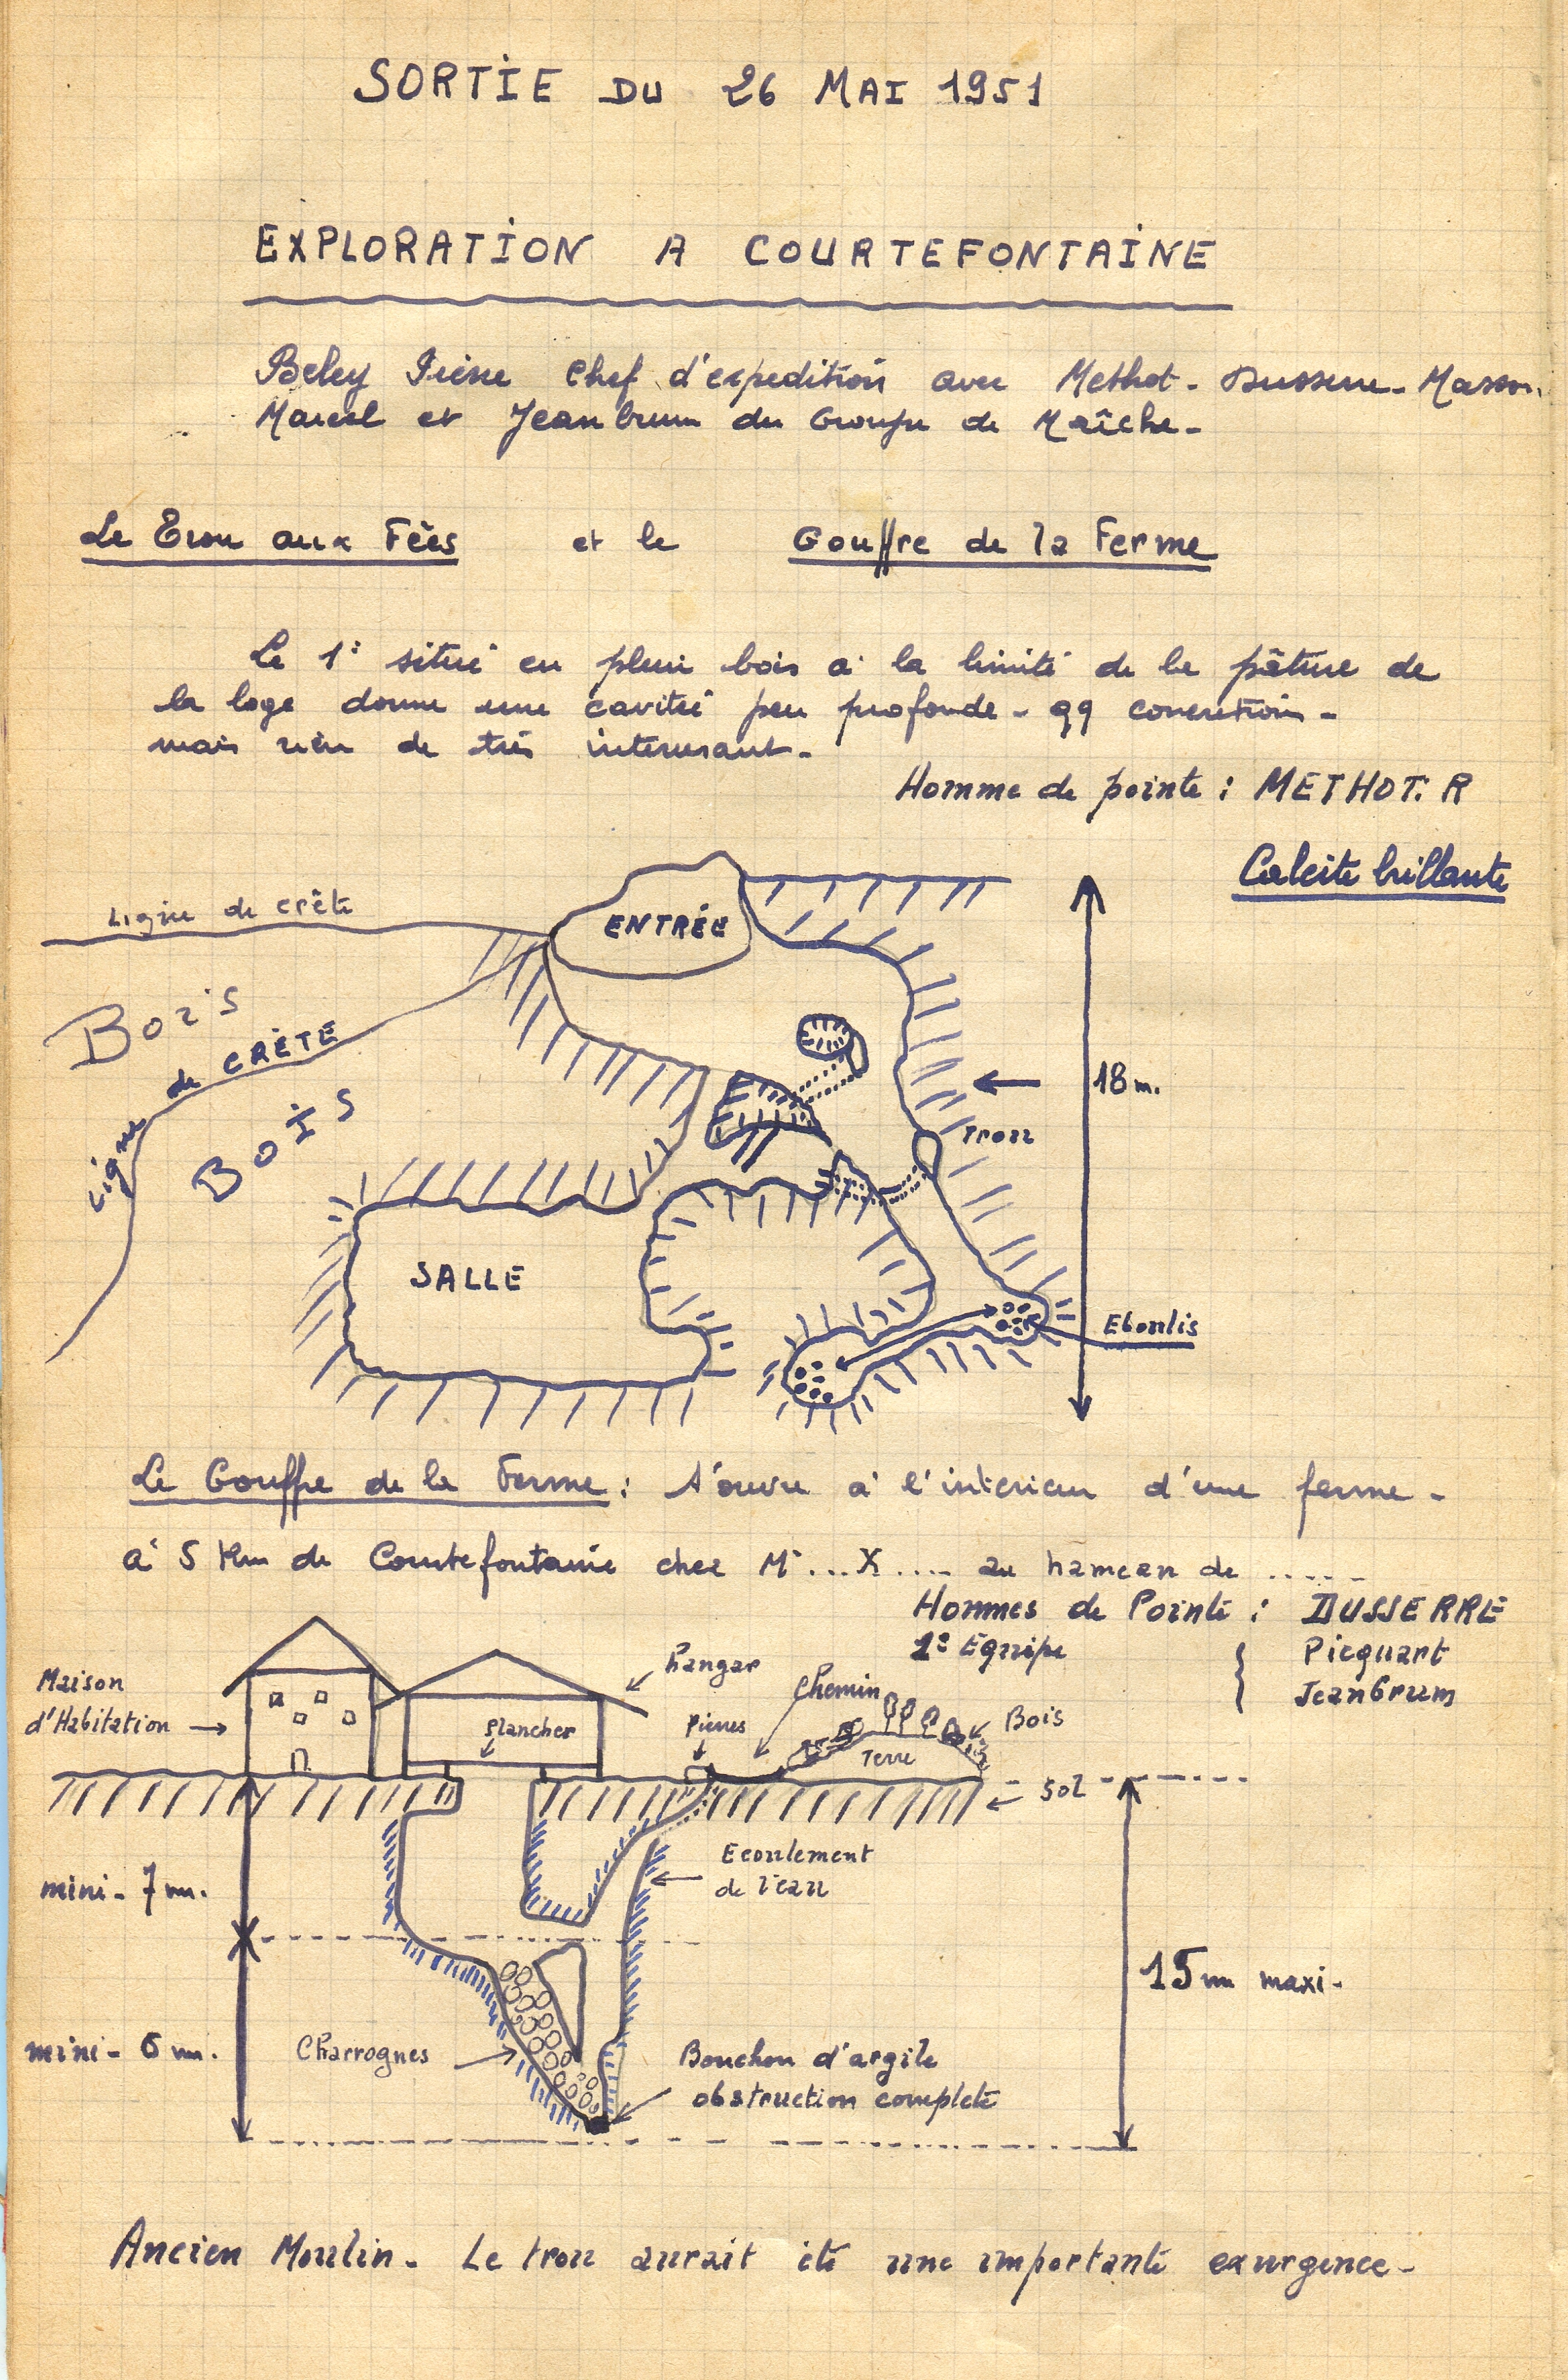 SORTIE DU 26 MAI 1951
EXPLORATION A COURTEFONTAINE
Beley Irène Chef d'expedition avec Methot - Dusserre - Masson
Marcel et Jeanbrun du Groupe de Maîche -
Le Trou aux Fées et le Gouffre de la Ferme
Le 1° situé en plein bois à la limite de la pâture de
la loge donne une cavité peu profonde - qq concrétions -
mais rien de très interessant -
Homme de pointe : METHOT. R
Calcite brillante
Ligne de crête
ENTRÉE
Bois
Ligne de CRÊTE
BOIS
18 m.
Trou
SALLE
Eboulis
Le Gouffre de la Ferme : s'ouvre à l'interieur d'une ferme -
à 5 Km de Courtefontaine chez Mr ... X .... au hameau de .....
Hommes de Pointe : DUSSERRE
1° Equipe { Picquart
Jeanbrum
Maison
d'Habitation
hangar
plancher
Pierres
Chemin
Bois
Terre
Sol
Ecoulement
de l'eau
mini - 7 m.
15 m maxi -
mini - 6 m.
Charrognes
Bouchon d'argile
obstruction complete
Ancien Moulin - Le trou aurait été une importante exurgence -